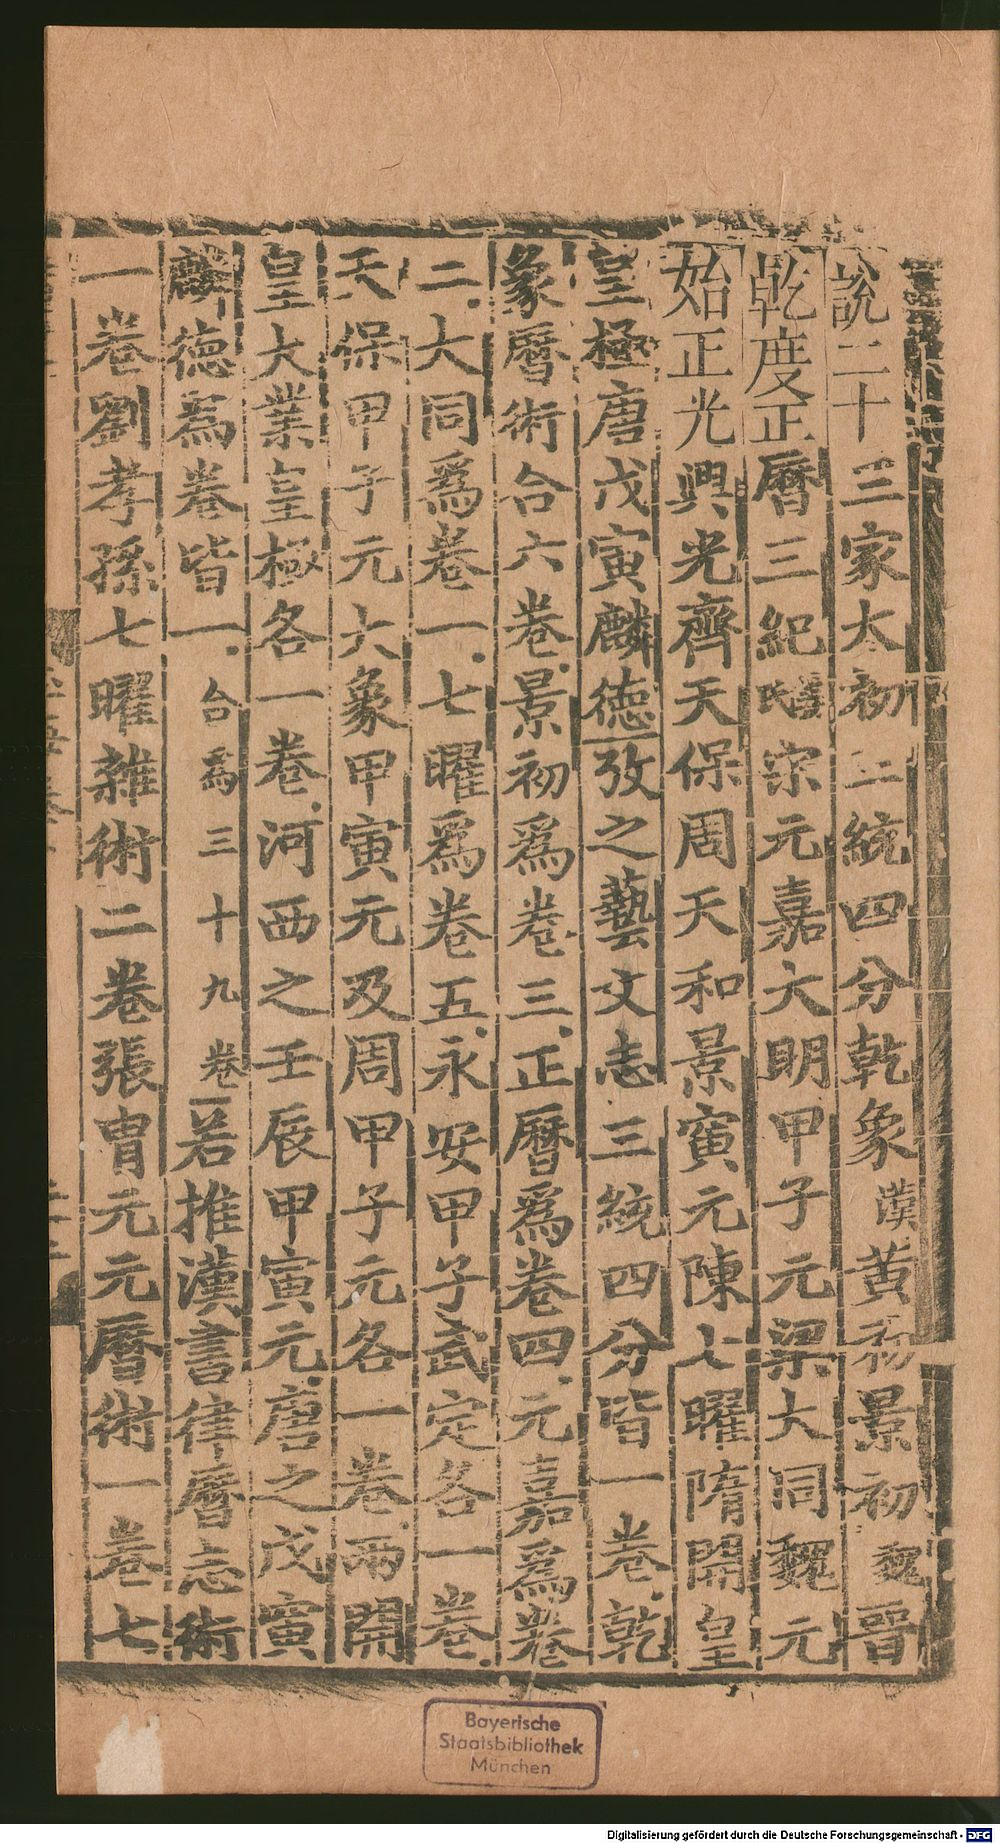 說二十三家太初三統四分乾象漢黃初景初魏晉
乾度正曆三紀宋元嘉大明甲子元梁大同魏元
始正光興光齊天保周天和景寅元陳七曜隋開皇
皇極唐戊寅麟德攷之藝文志三統四分皆一卷乾
象曆術合六卷景初爲卷三正曆爲卷四元嘉爲卷
二大同爲卷一七曜爲卷五永安甲子武定各一卷
天保甲子元六象甲寅元及周甲子元各一卷兩開
皇大業皇極各一卷河西之壬辰甲寅元唐之戊寅
麟德爲卷皆一合爲三十九卷若推漢書律曆志術
一卷劉孝孫七曜雜術二卷張胄元元曆術一卷七
Bayerische
Staatsbibliothek
München
Digitalisierung gefördert durch die Deutsche Forschungsgemeinschaft - DFG